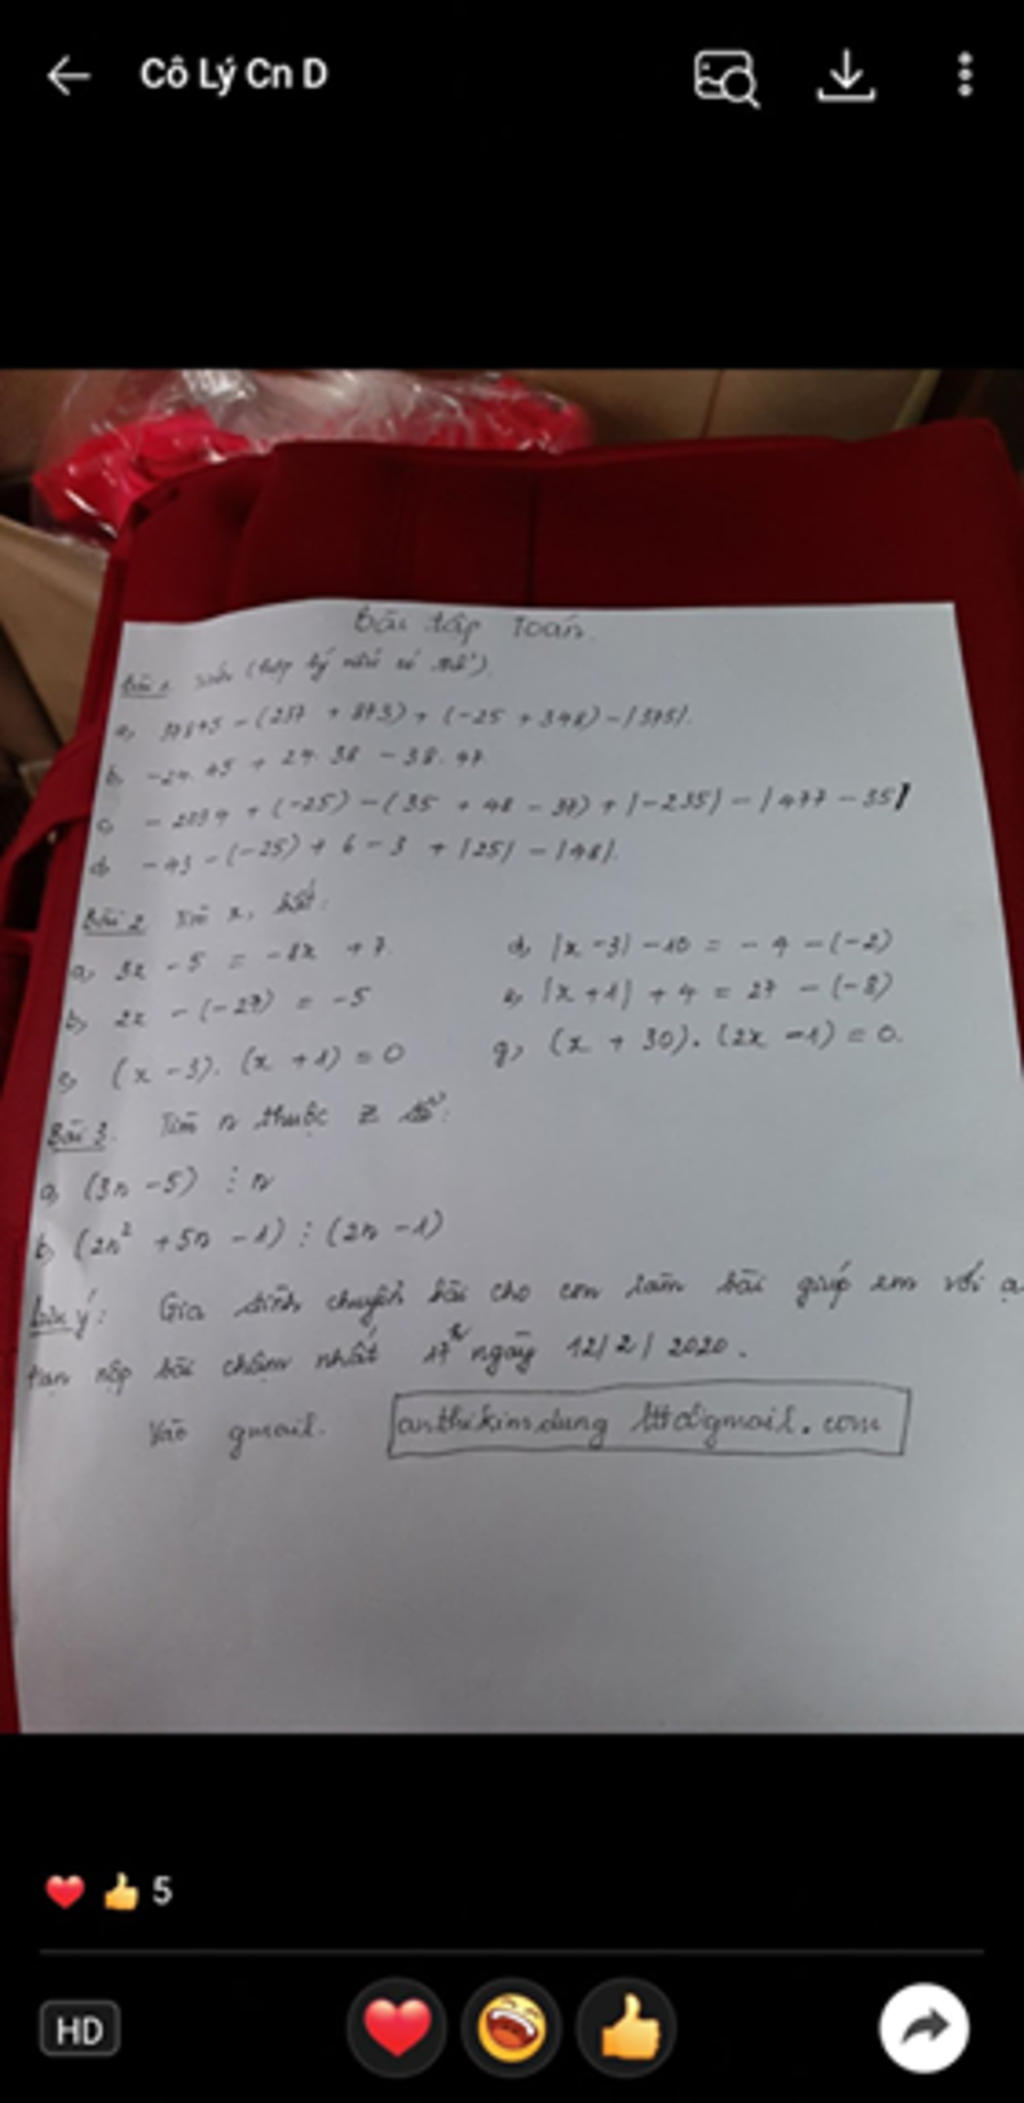 Cô Lý Cn D
Bài tập Toán.
Bài 1
b, -24. 45 + 24. 38 - 38. 47
+ (-25) - (35 + 48 - 37) + |-235| - |477 - 35|
d, -43 - (-25) + 6 - 3 + |25| - |48|.
Bài 2 Tìm x, biết:
a, 3x - 5 = -8x + 7.
b, 2x - (-27) = -5
c, (x - 3). (x + 1) = 0
d, |x - 3| - 10 = - 4 - (-2)
e, |x + 1| + 4 = 27 - (-8)
g, (x + 30). (2x - 1) = 0.
Bài 3. Tìm n thuộc Z để:
a, (3n - 5) ⋮ n
b, (2n² + 5n - 1) ⋮ (2n - 1)
Lưu ý: Gia đình chuyển bài cho con làm bài giúp em với ạ
nộp bài chậm nhất 17h ngày 12/2/2020.
Vào gmail. anthikimdung @gmail.com
5
HD